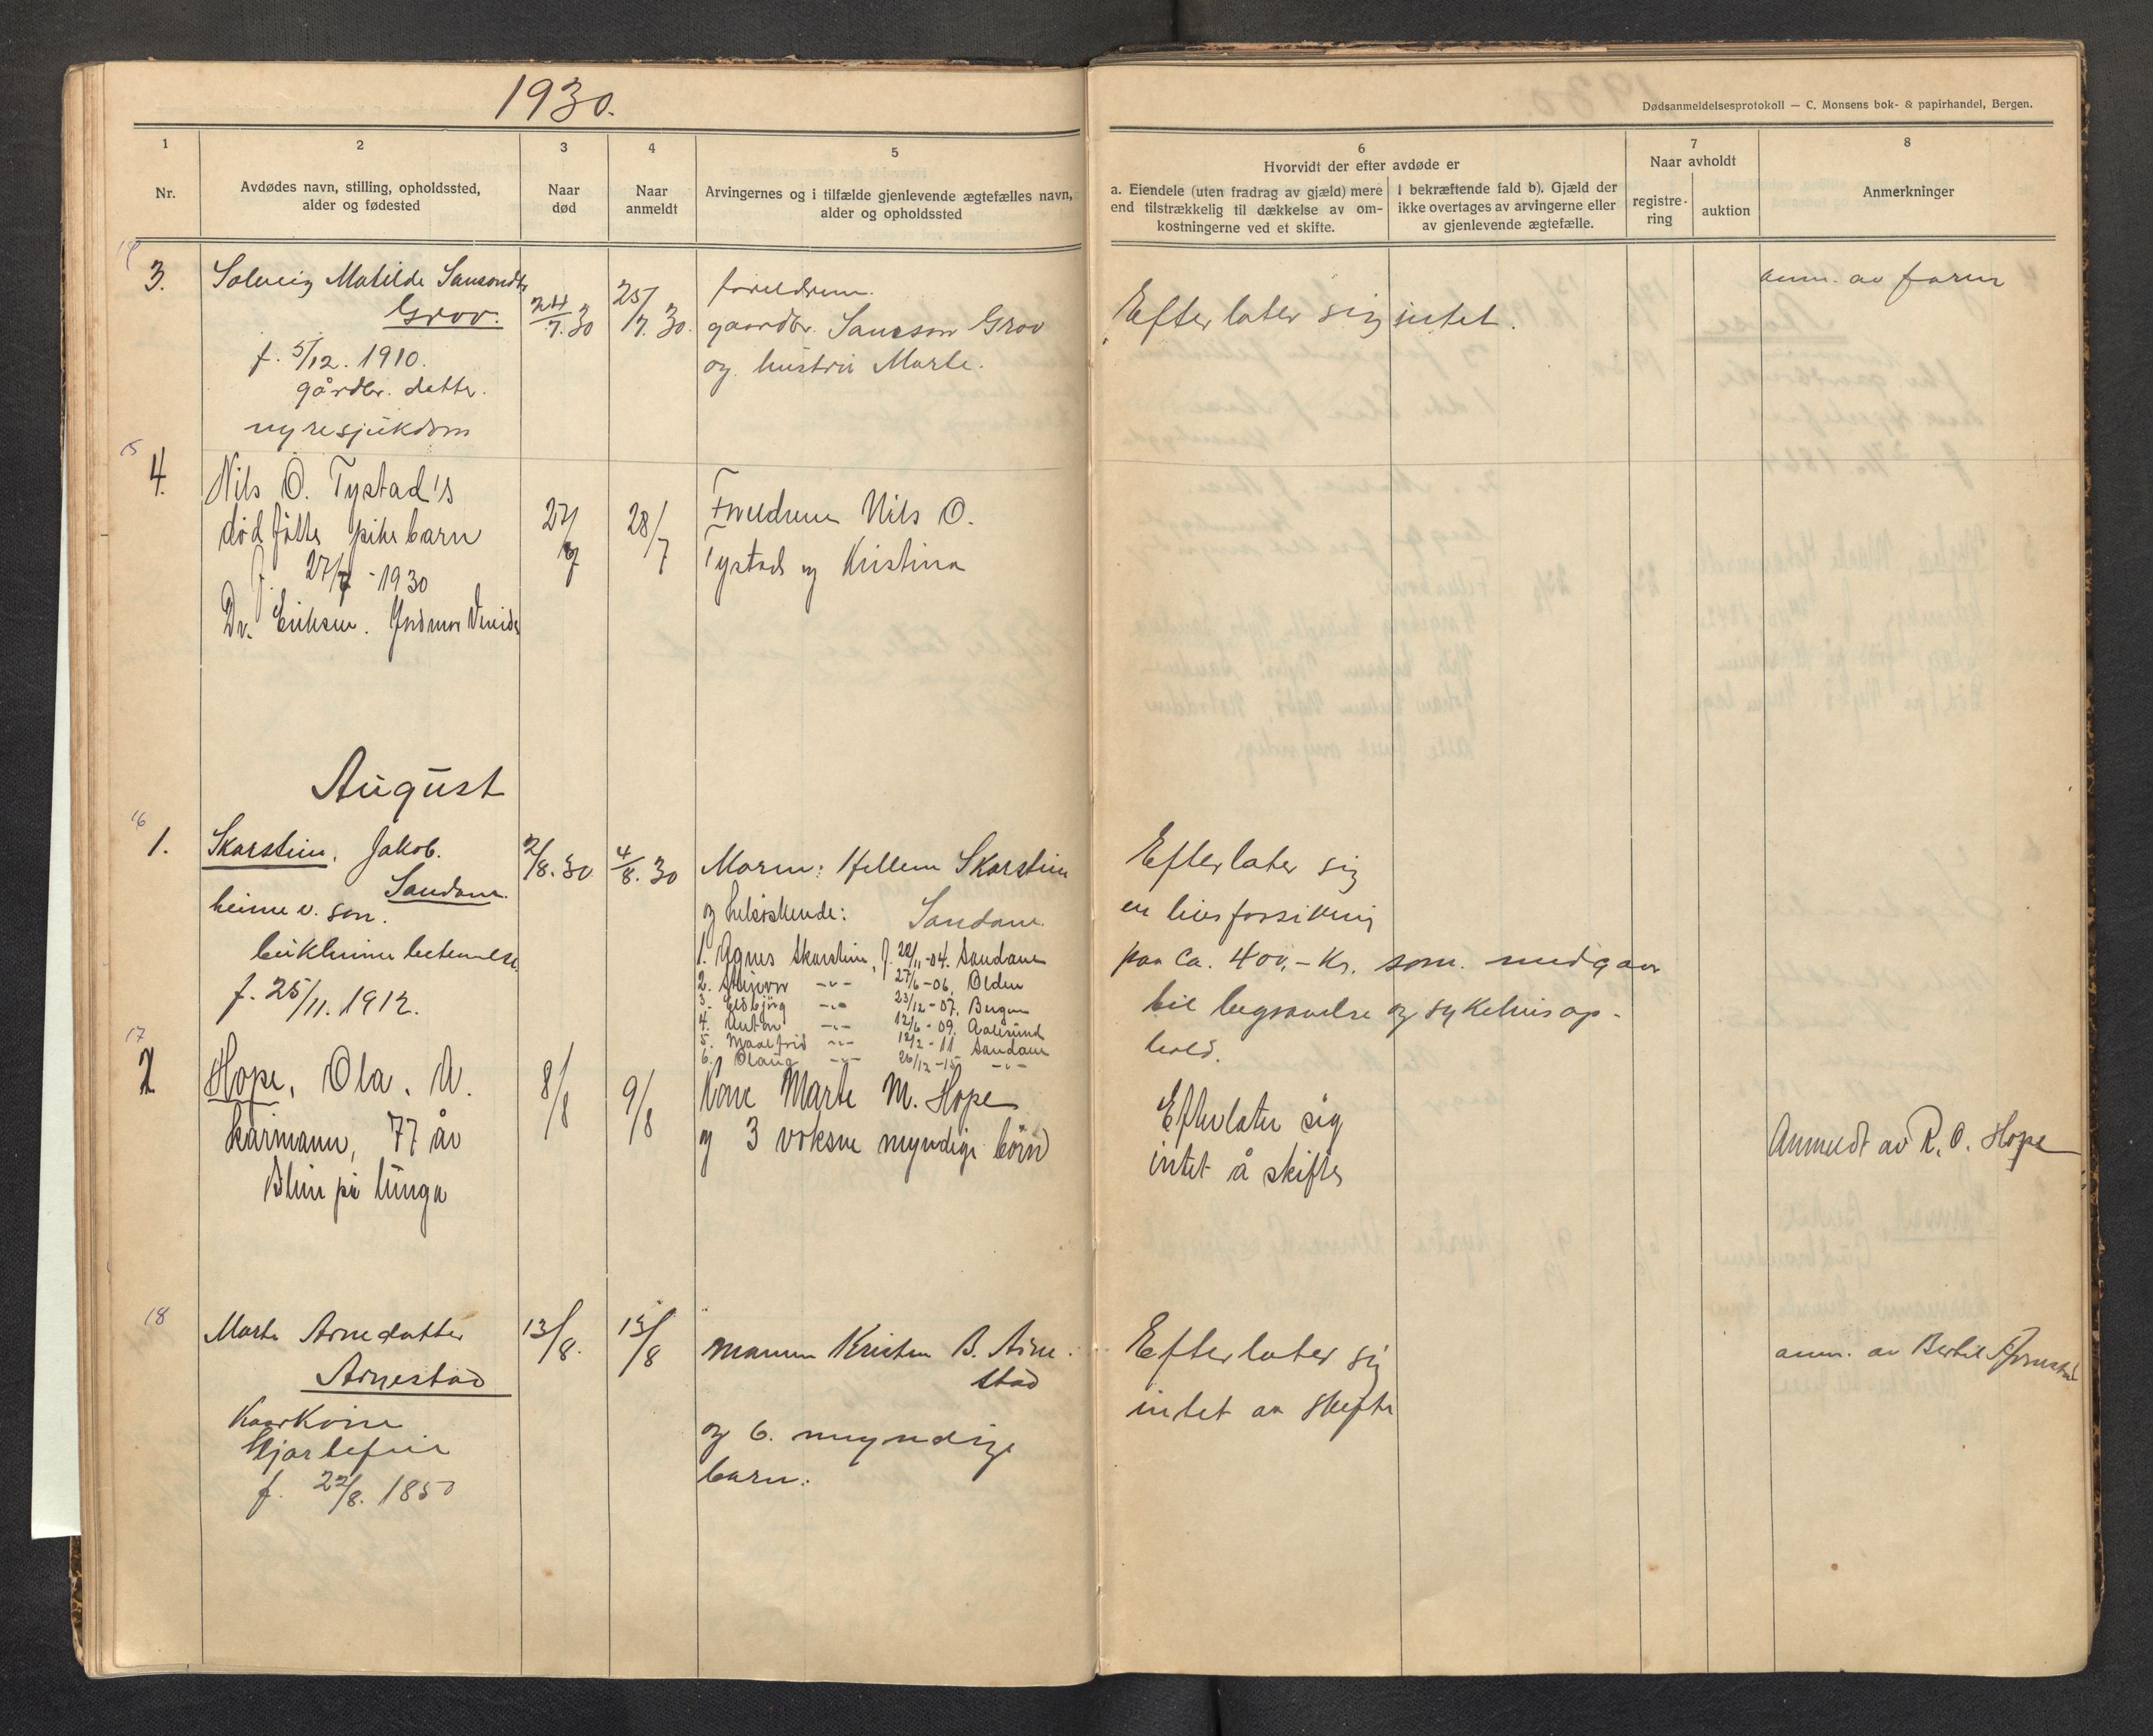 1930.
Dødsanmeldelsesprotokoll — C. Monsens bok- & papirhandel, Bergen.
1
Nr.
2
Avdødes navn, stilling, opholdssted,
alder og fødested
3
Naar
død
4
Naar
anmeldt
5
Arvingernes og i tilfælde gjenlevende ægtefælles navn,
alder og opholdssted
6
Hvorvidt der efter avdøde er
a. Eiendele (uten fradrag av gjæld) mere
end tilstrækkelig til dækkelse av om-
kostningerne ved et skifte.
I bekræftende fald b). Gjæld der
ikke overtages av arvingerne eller
av gjenlevende ægtefælle.
7
Naar avholdt
registre-
ring
auktion
8
Anmerkninger
3.
Solveig Matilde Samsondtr
Grov.
f. 5/12. 1910.
gårdbr. datter.
nyresjukdom
24/7.30
25/7.30.
foreldrene.
gaardbr. Samson Grov
og hustru Marte.
Efterlater sig intet.
anm. av faren
15
4.
Nils O. Tystad's
dødfötte pikebarn
f. 27/7 - 1930
Dr. Eriksen. Jordmor
27/7
28/7
Foreldrene Nils O.
Tystad og Kristina
August
16
1.
Skarstein, Jakob.
Sandane.
heime v. son.
f. 25/11. 1912.
2/8.30
4/8.30
Moren: Hellene Skarstein
og helsøskende: Sandane
1. Agnes Skarstein, f. 22/11-04. Sandane
2. 27/6-06. Olden
3. Eldbjörg -"- 23/12-07. Bergen
4. Anton -"- 12/6-09. Aalesund
5. Maalfrid -"- 12/2-11 Sandane
6. Olaug -"- 26/12-15 -"-
Efterlater sig
en livsforsikring
paa ca. 400,- Kr. som. medgaar
til begravelse og sykehusop-
hold.
17
2
Hope, Ola. A.
kårmann, 77 år
8/8
9/8
Kone Marte M. Hope
og 3 voksne myndige börn
Efterlater sig
intet å skifte
Anmeldt av R. O. Hope
18
Marte Arnedatter
Arnestad
Kaarkone
Hjartefeil
f. 22/8. 1850
13/8.
15/8
mannen Kristen B. Arne-
stad
og 6. myndige
barn.
Efterlater sig
intet aa skifte
anm. av Bertil Arnestad